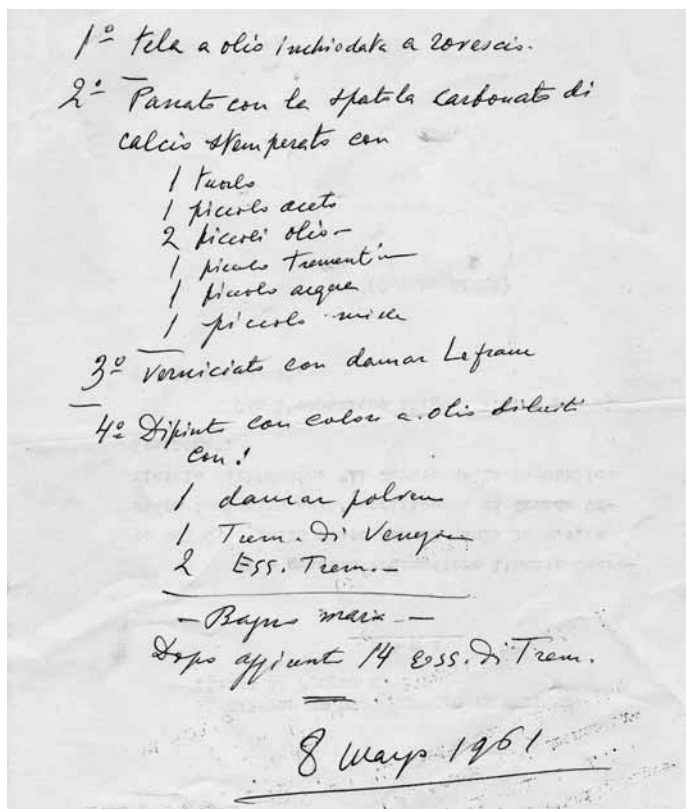 1º tela a olio inchiodata a rovescio.
2º Passato con la spatola carbonato di
calcio stemperato con
1 tuorlo
1 piccolo aceto
2 piccoli olio
1 piccolo trementin
1 piccolo acqua
1 piccolo miele
3º Verniciato con damar Lefranc
4º Dipinto con colore a olio diluiti
con:
1 damar polvere
1 Trem. di Venezia
2 Ess. Trem.
- Bagno maria -
Dopo aggiunto 14 ess. di Trem.
8 Marzo 1961